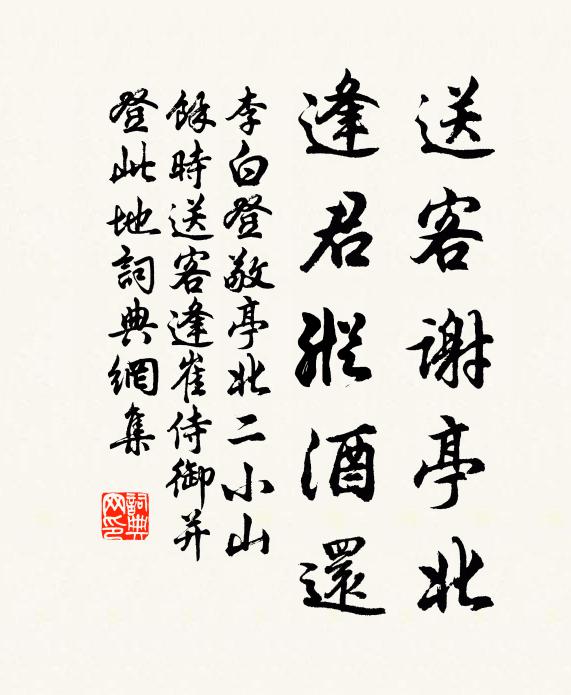 送客謝亭北
逢君縱酒還
李白登敬亭北二小山
餘時送客逢崔侍御并
登此地詞典網集
詞典
网印